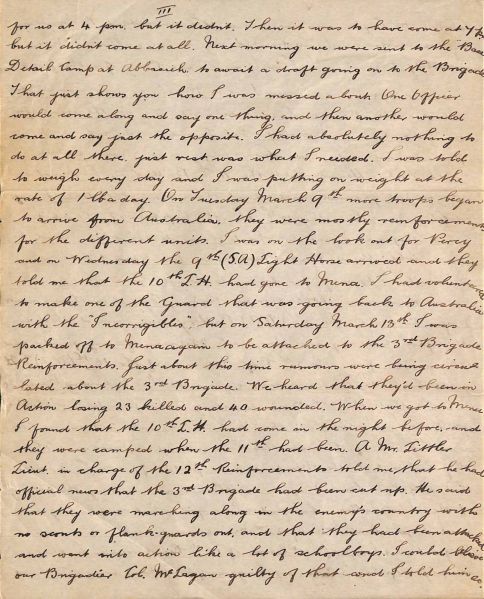 III
for us at 4 pm. but it didn't. Then it was to have come at 7 pm
but it didn't come at all. Next morning we were sent to the Base
Detail Camp at Abbassich. to await a draft going on to the Brigade
That just shows you how I was messed about. One Officer
would come along and say one thing, and then another would
come and say just the opposite. I had absolutely nothing to
do at all there. just rest was what I needed. I was told
to weigh every day and I was putting on weight at the
rate of 1 lb a day. On Tuesday March 9th more troops began
to arrive from Australia, they were mostly reinforcements
for the different units. I was on the look out for Percy
and on Wednesday the 9th (S.A) Light Horse arrived and they
told me that the 10th L.H. had gone to Mena. I had volunteered
to make one of the Guard that was going back to Australia
with the "Incorrigibles", but on Saturday March 13th I was
packed off to Mena again to be attached to the 3rd Brigade
Reinforcements. Just about this time rumours were being circu
lated about the 3rd Brigade. We heard that they'd been in
Action losing 23 killed and 40 wounded. When we got to Mena
I found that the 10th L.H. had come in the night before, and
they were camped when the 11th had been. A Mr. Littler
Lieut. in charge of the 12th Reinforcements told me that he had
official news that the 3rd Brigade had been cut up. He said
that they were marching along in the enemy's country with
no scouts or flank-guards out, and that they had been attacked
and went into action like a lot of schoolboys. I could
our Brigadier Col. McLagan guilty of that and I told him so.